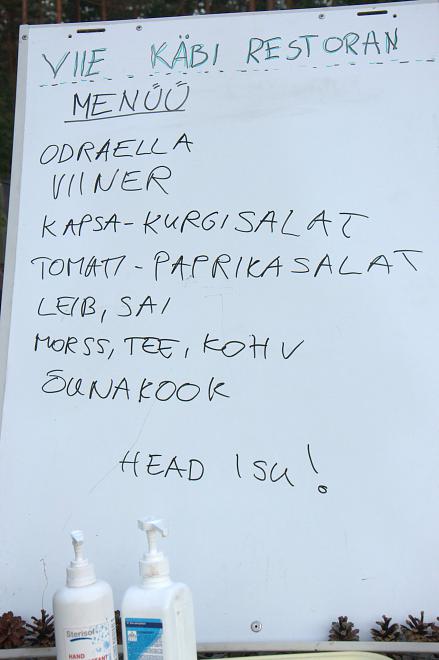 VIIE KÄBI RESTORAN
MENÜÜ
ODRAELLA
VIINER
KAPSA-KURGISALAT
TOMATI-PAPRIKASALAT
LEIB, SAI
MORSS, TEE, KOHV
ÕUNAKOOK
HEAD ISU!
Sterisol
HAND